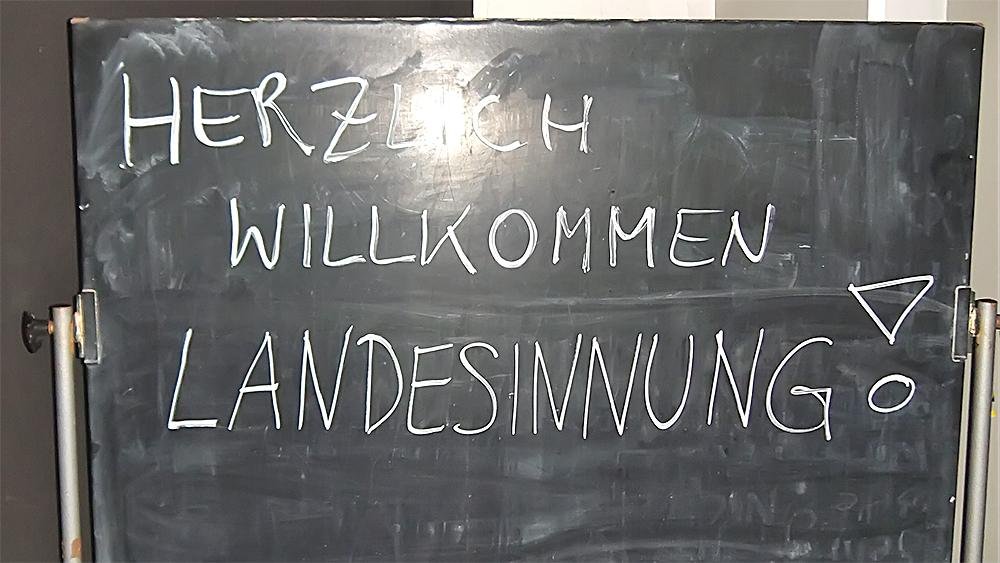 HERZLICH
WILLKOMMEN
LANDESINNUNG!